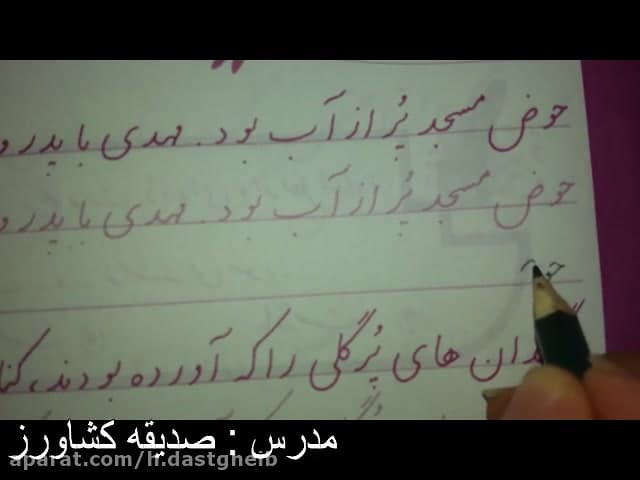 حوض مسجد پُر از آب بود. مهدی با پدر و
حوض مسجد پُر از آب بود. مهدی با پدر و
حو
گلدان های پُرگلی را که آورده بودند، کنا
مدرس : صدیقه کشاورز
aparat.com/lf.dastgheib